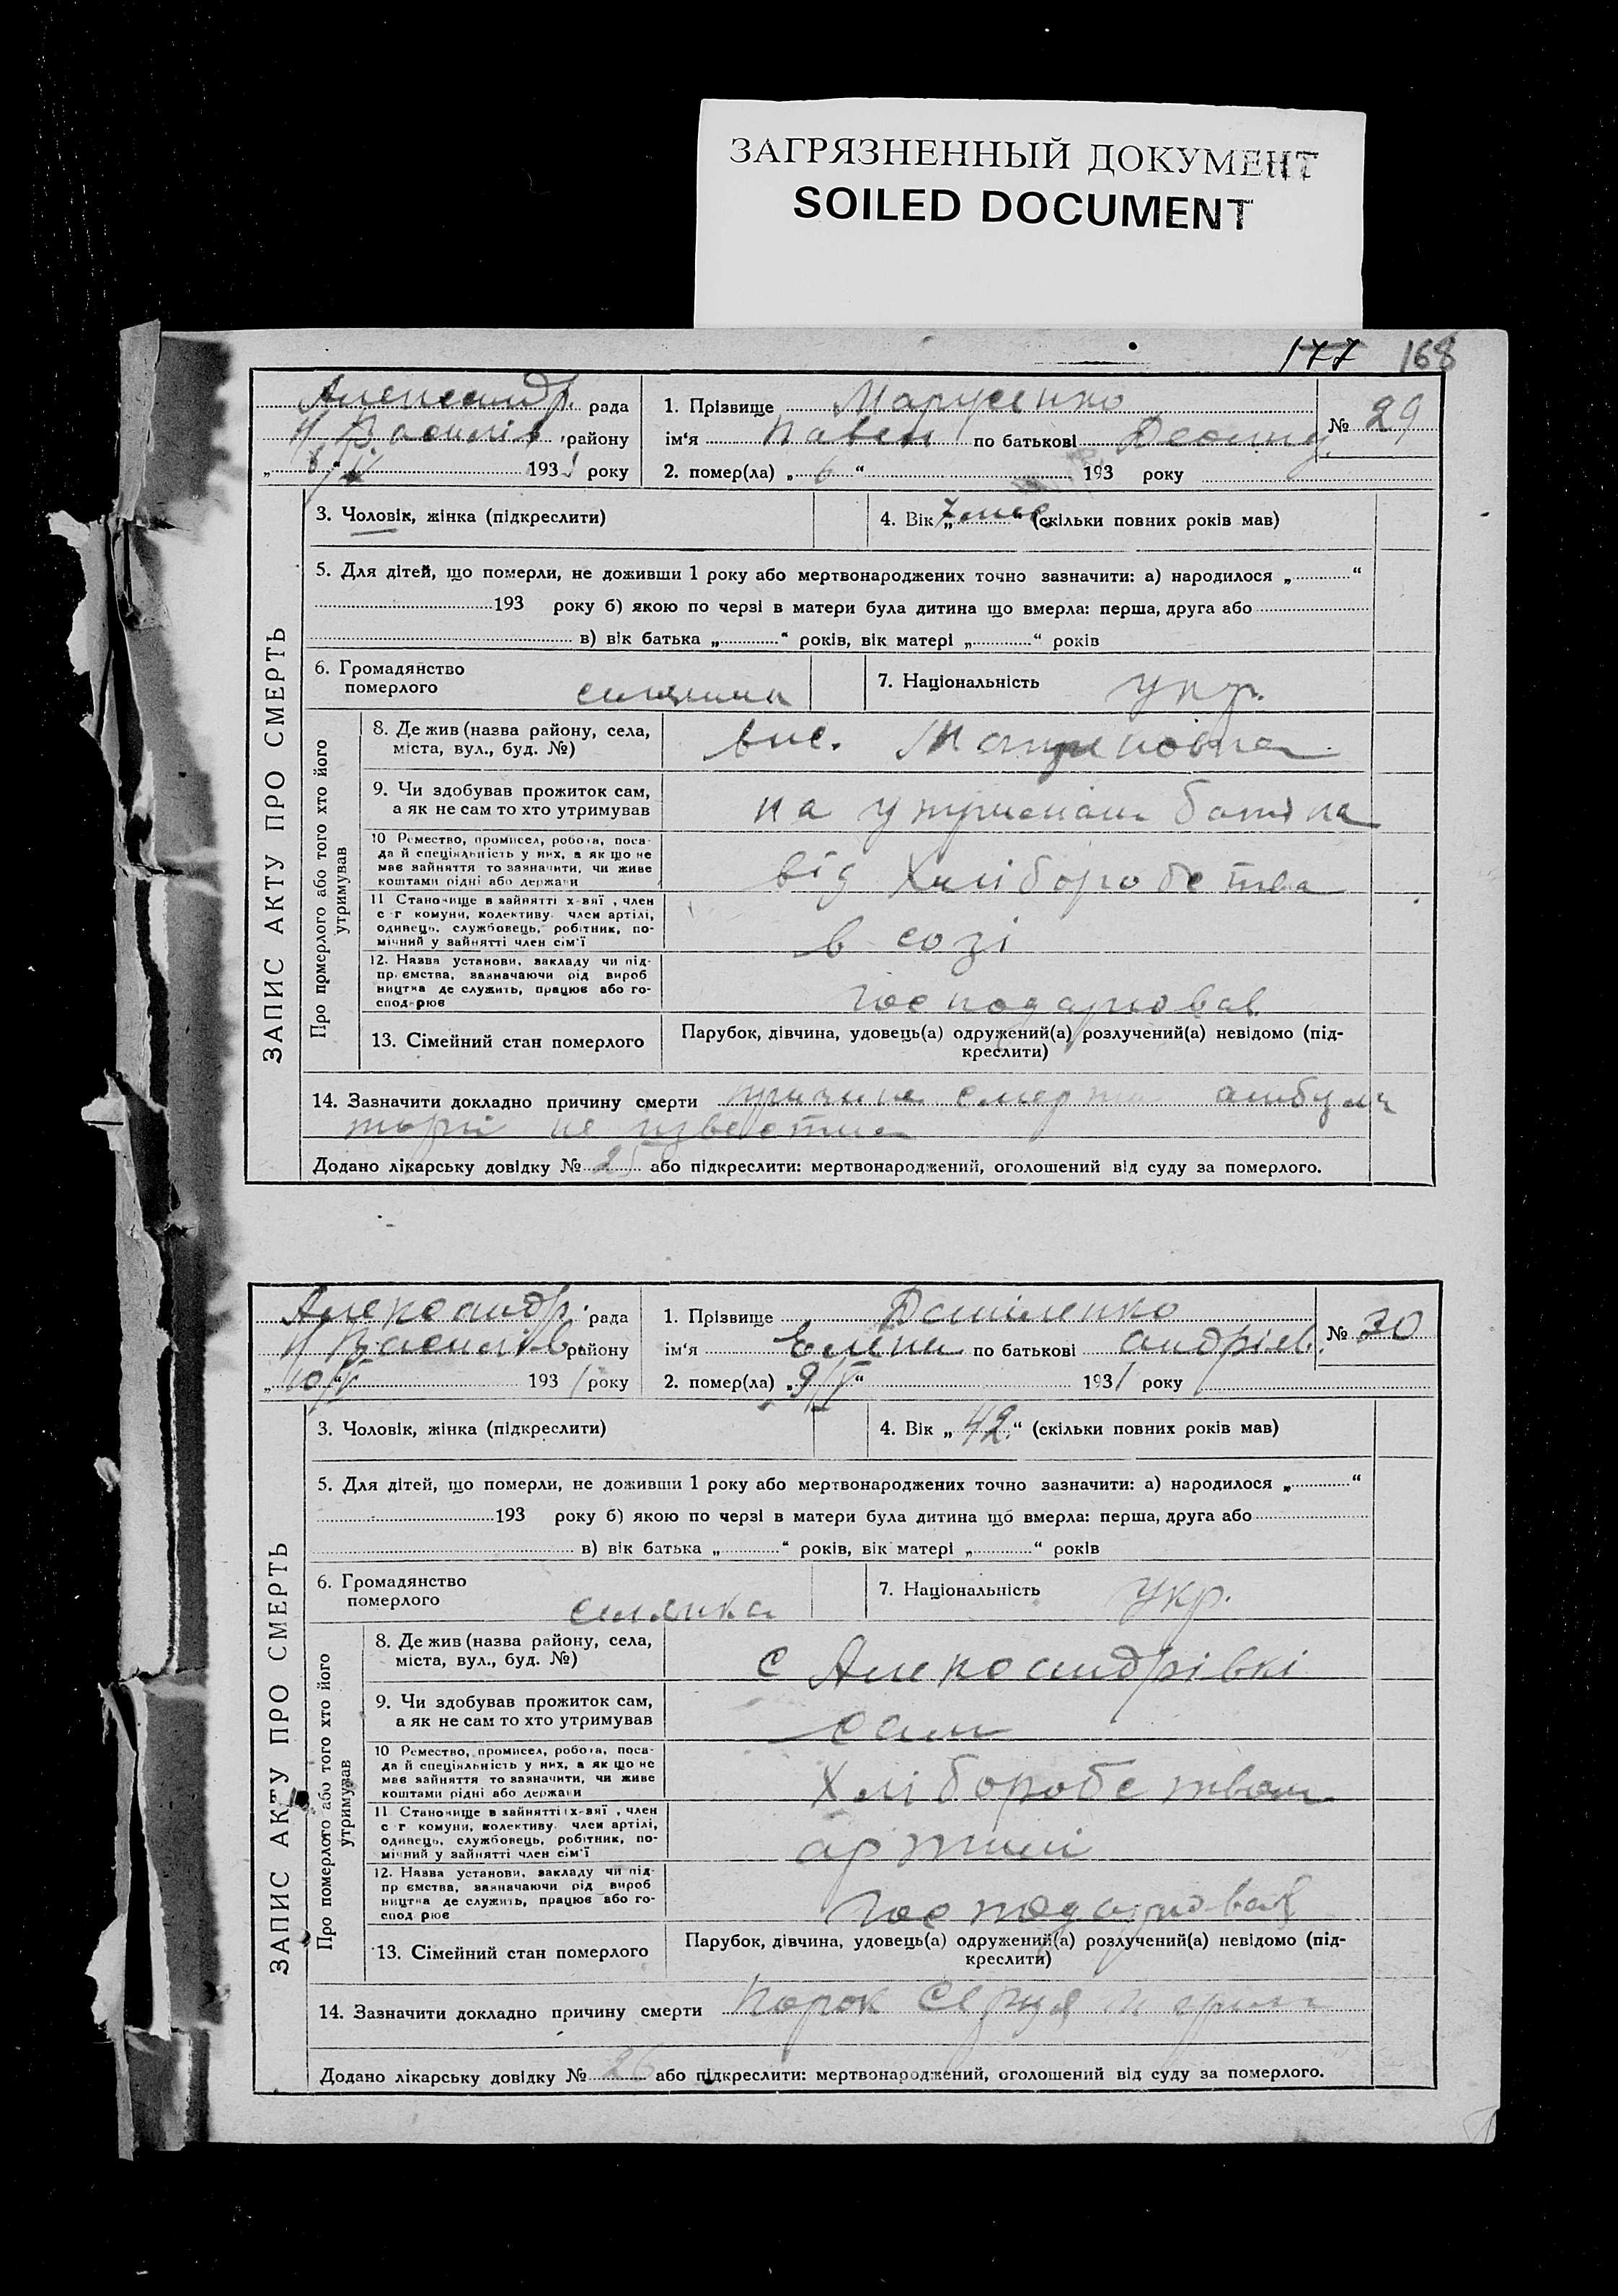 ЗАГРЯЗНЕННЫЙ ДОКУМЕНТ
SOILED DOCUMENT
177 168
Александр. рада
Н. Василів району
193 1 року
1. Прізвище Марусенко
ім‘я Павел по батькові
2. помер(ла) „ 6 “ 193 року
№ 29
3. Чоловік, жінка (підкреслити)
4. Вік „ “ (скільки повних років мав)
5. Для дітей, що померли, не доживши 1 року або мертвонароджених точно зазначити: а) народилося „ “
193 року б) якою по черзі в матери була дитина що вмерла: перша, друга або
в) вік батька „ “ років, вік матері „ “ років
6. Громадянство
померлого селянин
7. Національність укр.
ЗАПИС АКТУ ПРО СМЕРТЬ
Про померлого або того хто його
утримував
8. Де жив (назва району, села,
міста, вул., буд. №)
вис.
9. Чи здобував прожиток сам,
а як не сам то хто утримував
на утриман батька
10 Ремество, промисел, робота, поса-
да й спеціяльність у них, а як що не
має зайняття то зазначити, чи живе
коштами рідні або держави
від Хліборобства
11 Становище в зайнятті х-вяї , член
с г комуни, колективу член артілі,
одинець, службовець, робітник, по-
мічний у зайнятті член сім'ї
в созі
12. Назва установи, закладу чи під-
пр ємства, зазначаючи рід вироб
ництва де служить, працює або го-
спод рює
господарював
13. Сімейний стан померлого
Парубок, дівчина, удовець(а) одружений(а) розлучений(а) невідомо (під-
креслити)
14. Зазначити докладно причину смерти причина смерти амбула
торії не ізвестна
Додано лікарську довідку № 25 або підкреслити: мертвонароджений, оголошений від суду за померлого.
Александр. рада
Н Василів району
„ 10/V “ 193 1 року
1. Прізвище Даниленко
ім‘я Елена по батькові андріев.
2. помер(ла) „ 9/V “ 193 1 року
№ 30
3. Чоловік, жінка (підкреслити)
4. Вік „ 42 “ (скільки повних років мав)
5. Для дітей, що померли, не доживши 1 року або мертвонароджених точно зазначити: а) народилося „ “
193 року б) якою по черзі в матери була дитина що вмерла: перша, друга або
в) вік батька „ “ років, вік матері „ “ років
6. Громадянство
померлого селянка
7. Національність укр.
ЗАПИС АКТУ ПРО СМЕРТЬ
Про померлого або того хто його
утримував
8. Де жив (назва району, села,
міста, вул., буд. №)
с Александрівкі
9. Чи здобував прожиток сам,
а як не сам то хто утримував
сам
10 Ремество, промисел, робота, поса-
да й спеціяльність у них, а як що не
має зайняття то зазначити, чи живе
коштами рідні або держави
Хліборобством
11 Становище в зайнятті х-вяї , член
с г комуни, колективу член артілі,
одинець, службовець, робітник, по-
мічний у зайнятті член сім'ї
артилі
12. Назва установи, закладу чи під-
пр ємства, зазначаючи рід вироб
ництва де служить, працює або го-
спод рює
господарював
13. Сімейний стан померлого
Парубок, дівчина, удовець(а) одружений(а) розлучений(а) невідомо (під-
креслити)
14. Зазначити докладно причину смерти Порок серця
Додано лікарську довідку № 26 або підкреслити: мертвонароджений, оголошений від суду за померлого.